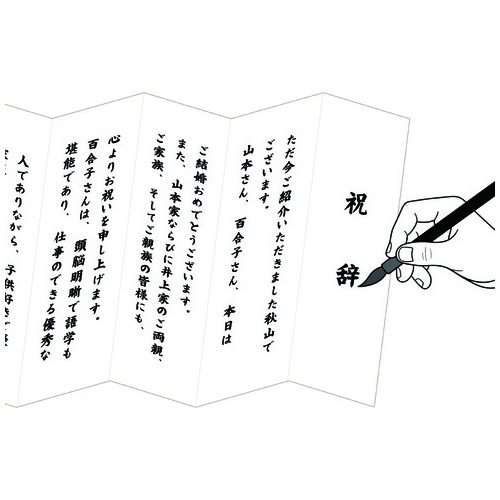 祝辞
ただ今ご紹介いただきました秋山で
ございます。
山本さん、百合子さん、本日は
ご結婚おめでとうございます。
また、山本家ならびに井上家のご両親、
ご家族、そしてご親族の皆様にも、
心よりお祝いを申し上げます。
百合子さんは、頭脳明晰で語学も
堪能であり、仕事のできる優秀な
人でありながら、子供好きで